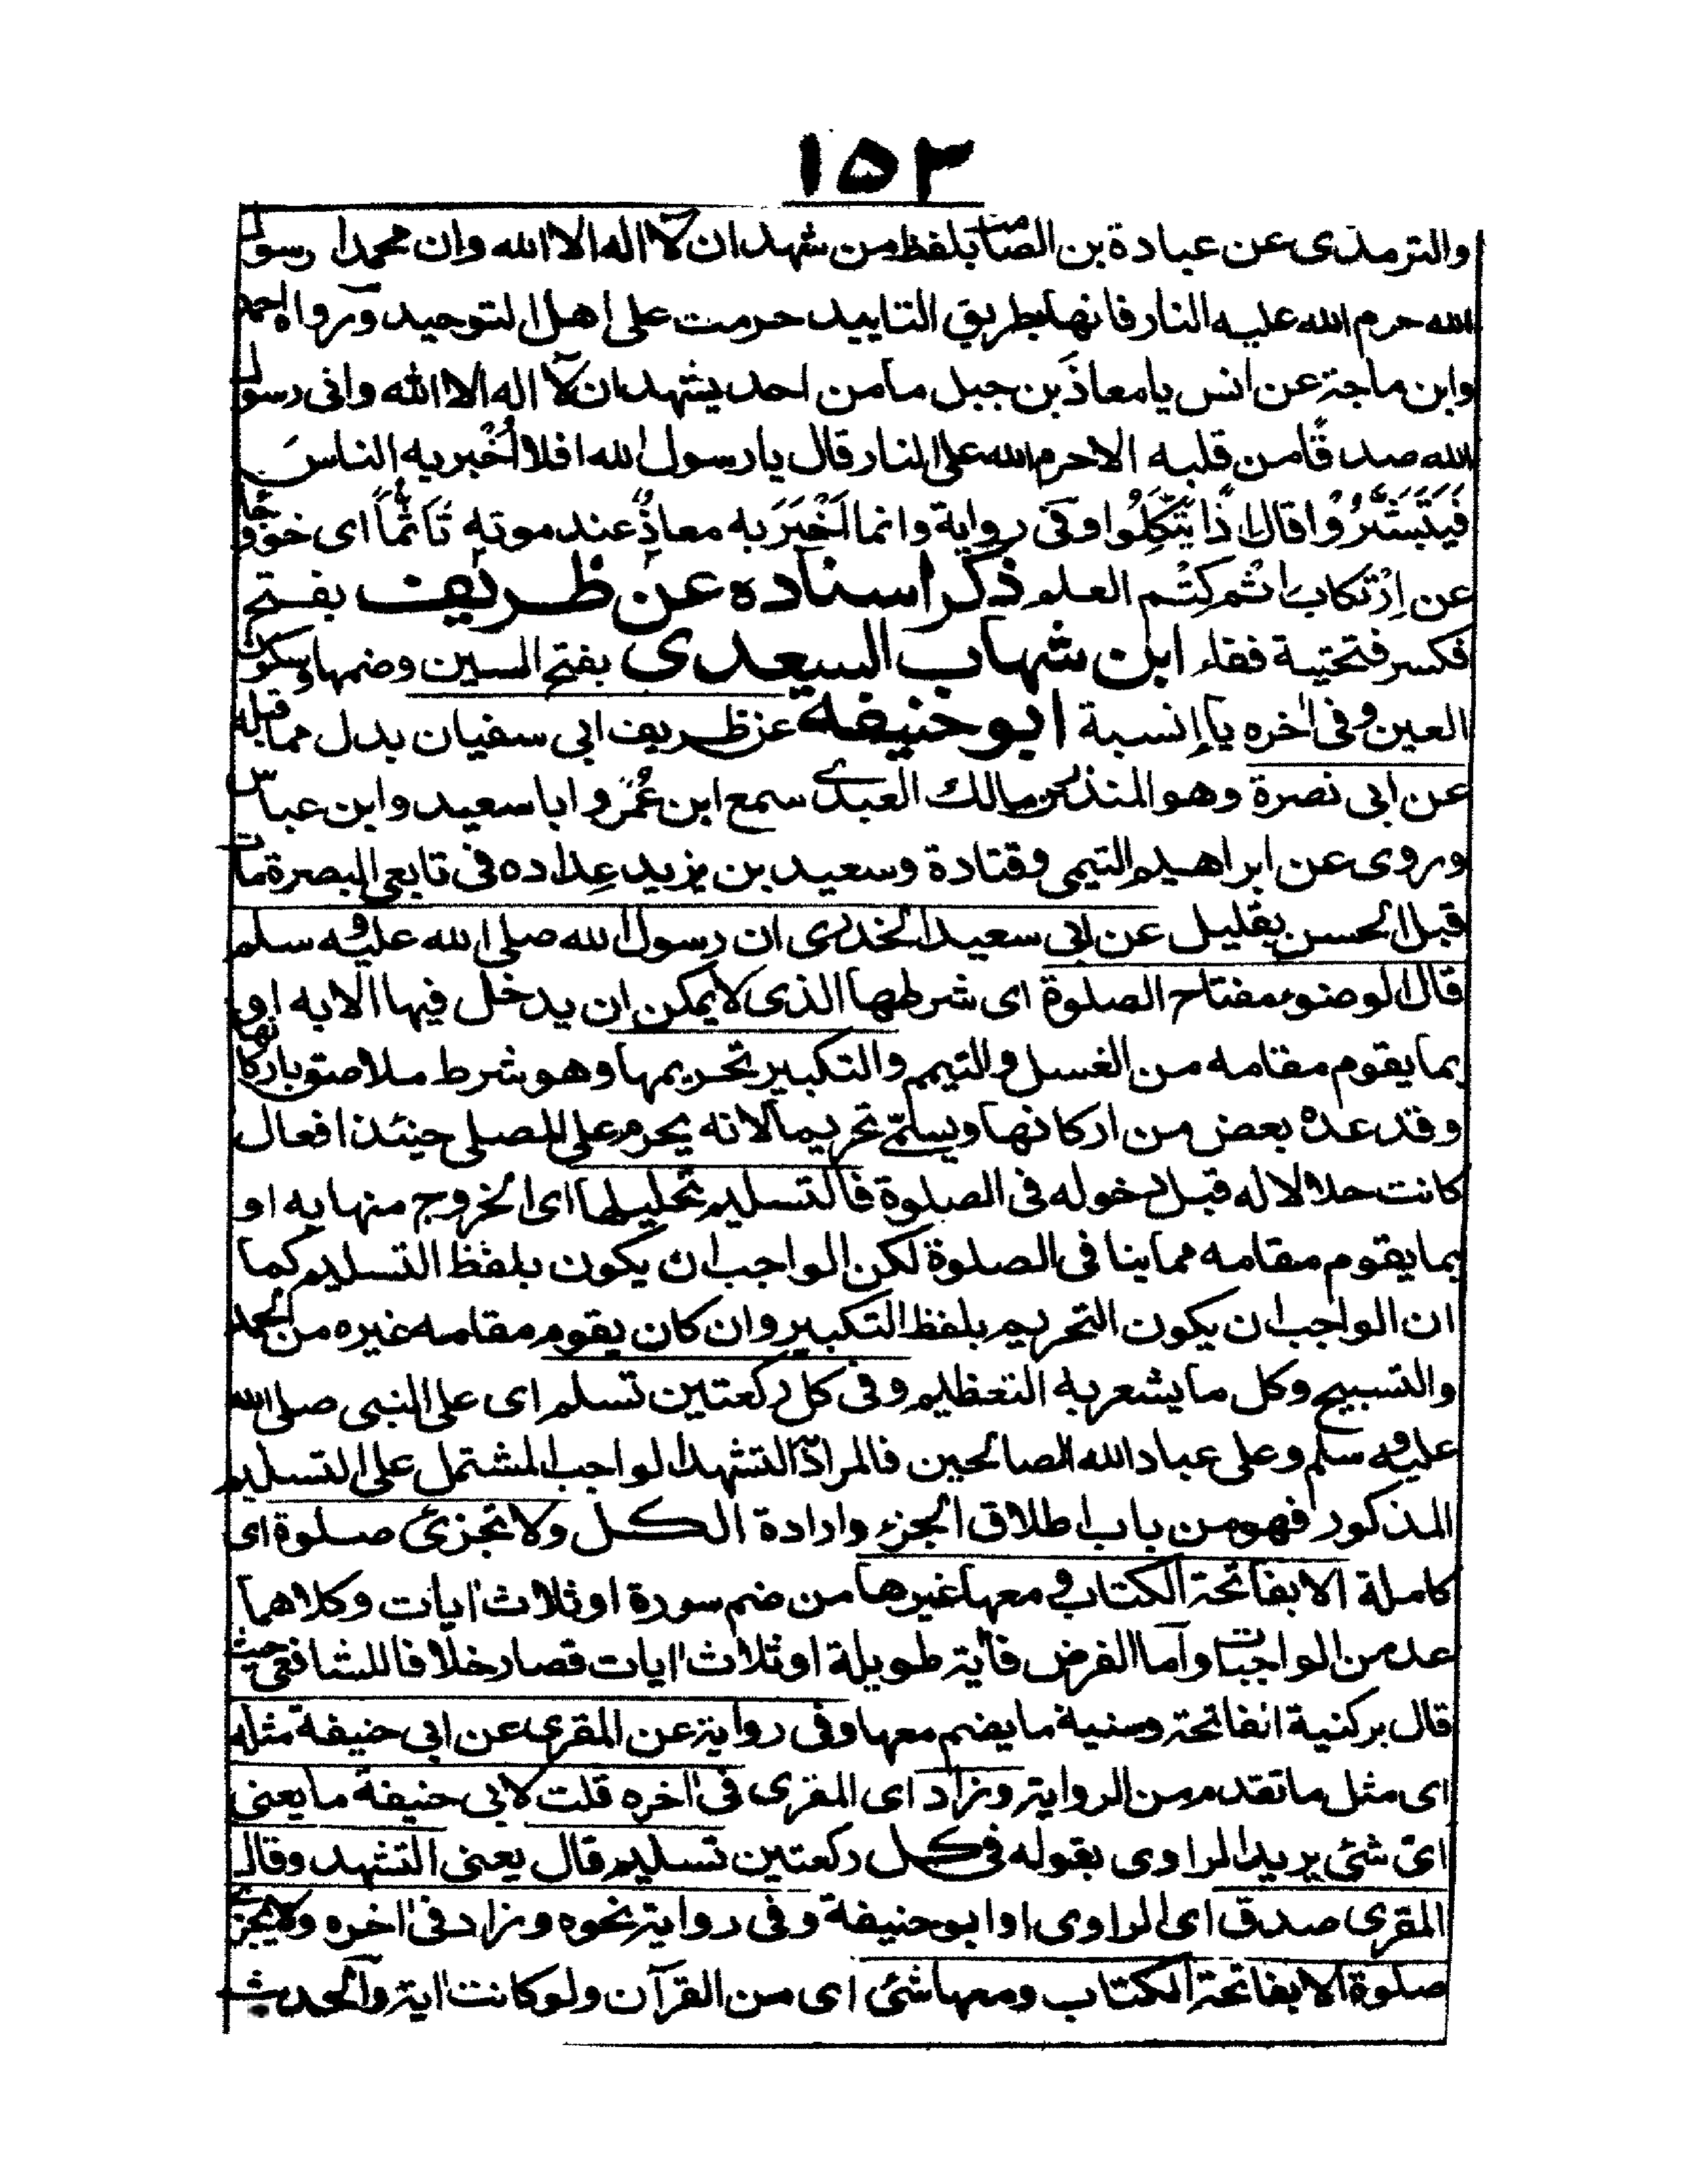 ١٥٣
والترمذى عن عبادة بن الصامت بلفظ من شهد ان لا اله الا الله وان محمدا رسول
الله حرم الله عليه النار فانها بطريق التابيد حرمت على اهل التوحيد ورواه احمد
وابن ماجة عن انس يا معاذ بن جبل ما من احد يشهد ان لا اله الا الله وانى رسول
الله صدقا من قلبه الا حرم الله على النار قال يا رسول الله افلا اُخْبر به الناس
فَيَتَبَشَّرُوْا قال اذًا يَتَّكِلُوا وفى رواية وانما اَخْبَرَ به معاذٌ عند موته تَاَثُّماً اى خوفا
عن اِرْتكاب اثم كِتْم العلم ذكر اسناده عن ظريف بفتح
فكسر فتحتية ففاء ابن شهاب السعدى بفتح السين وضمها وسكون
العين وفى اٰخره ياء نسبة ابو حنيفة عن ظريف ابى سفيان بدل مما قبله
عن ابى نصرة وهو المنذر بن مالك العبدى سمع ابن عُمَر و ابا سعيد وابن عباس
وروى عن ابراهيم التيمى وقتادة وسعيد بن يزيد عِداده فى تابعى البصرة مات
قبل الحسن بقليل عن ابى سعيد الخدرى ان رسول الله صلى الله عليه وسلم
قال الوضوء مفتاح الصلوة اى شرطها الذى لا يمكن ان يدخل فيها الا به او
بما يقوم مقامه من الغسل والتيمم والتكبير تحريمها وهو شرط ملاصق باركانها
وقد عده بعض من اركانها ويسمّى تحريما لانه يحرم على المصلى حينئذ افعال
كانت حلالا له قبل دخوله فى الصلوة فالتسليم تحليلها اى الخروج منها به او
بما يقوم مقامه مما ينا فى الصلوة لكن الواجب ان يكون بلفظ التسليم كما
ان الواجب ان يكون التحريم بلفظ التكبير وان كان يقوم مقامه غيره من الحمد
والتسبيح وكل ما يشعر به التعظيم وفى كل ركعتين تسلم اى على النبى صلى الله
عليه وسلم وعلى عباد الله الصالحين فالمراد التشهد الواجب المشتمل على التسليم
المذكور فهو من باب اطلاق الجزء وارادة الكل ولا تجزئ صلوة اى
كاملة الا بفاتحة الكتاب و معها غيرها من ضم سورة او ثلاث اٰيات وكلاهما
عد من الواجبات واما الفرض فاٰية طويلة او ثلاث اٰيات قصار خلافا للشافعى حيث
قال بركنية الفاتحة وسنية ما يضم معها وفى رواية عن المقرى عن ابى حنيفة مثله
اى مثل ما تقدم من الرواية وزاد اى المقرى فى اٰخره قلت لابى حنيفة ما يعنى
اىّ شئ يريد الراوى بقوله فى كل ركعتين تسليم قال يعنى التشهد وقال
المقرى صدق اى الراوى او ابو حنيفة وفى رواية نحوه وزاد فى اٰخره ولا يجزئ
صلوة الا بفاتحة الكتاب ومعها شئ اى من القرآن ولو كانت اٰية والحديث